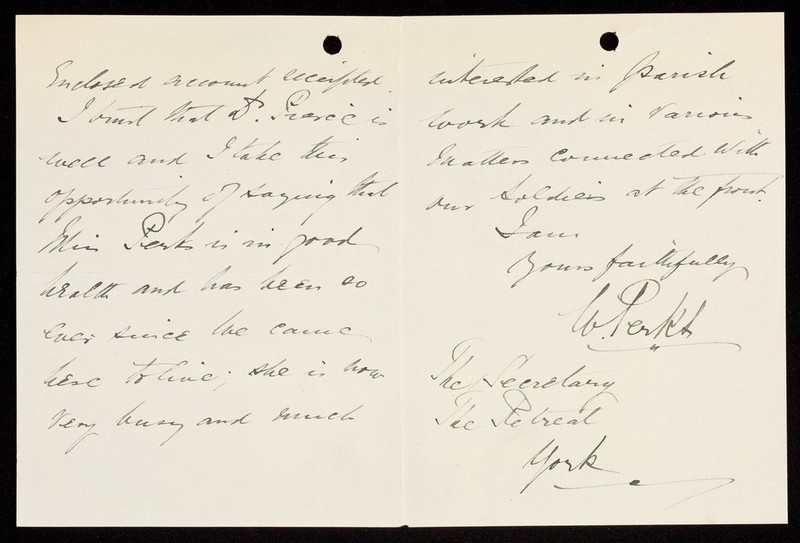 Enclosed account receipted.
I trust that Dr. Pierce is
well and I take this
opportunity of saying that
Miss Perks is in good
health and has been so
ever since we came
here to live; she is now
very busy and much
interested in Parish
work and in various
matters connected with
our soldiers at the front.
I am
Yours faithfully
W. Perks
The Secretary
The Retreat
York